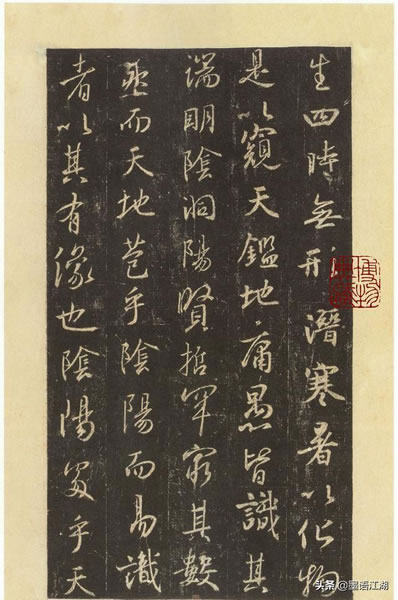 生四時無形潛寒暑以化物
是以窺天鑑地庸愚皆識其
端明陰洞陽賢哲罕窮其數
然而天地苞乎陰陽而易識
者以其有像也陰陽處乎天
头条 @墨语江湖